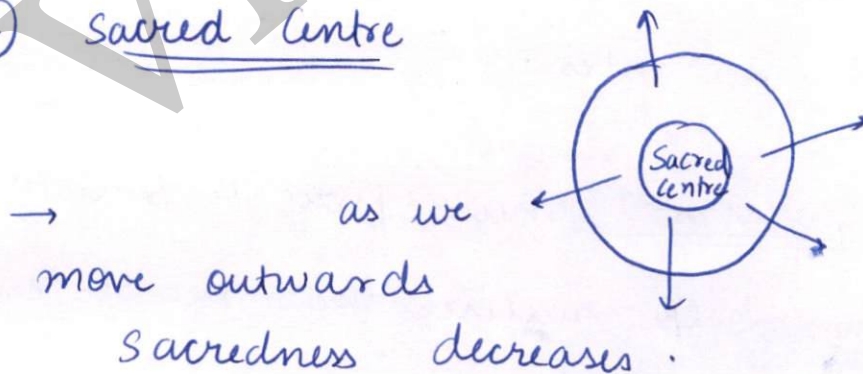 ) Sacred Centre
Sacred
centre
→ as we
move outwards
Sacredness decreases.